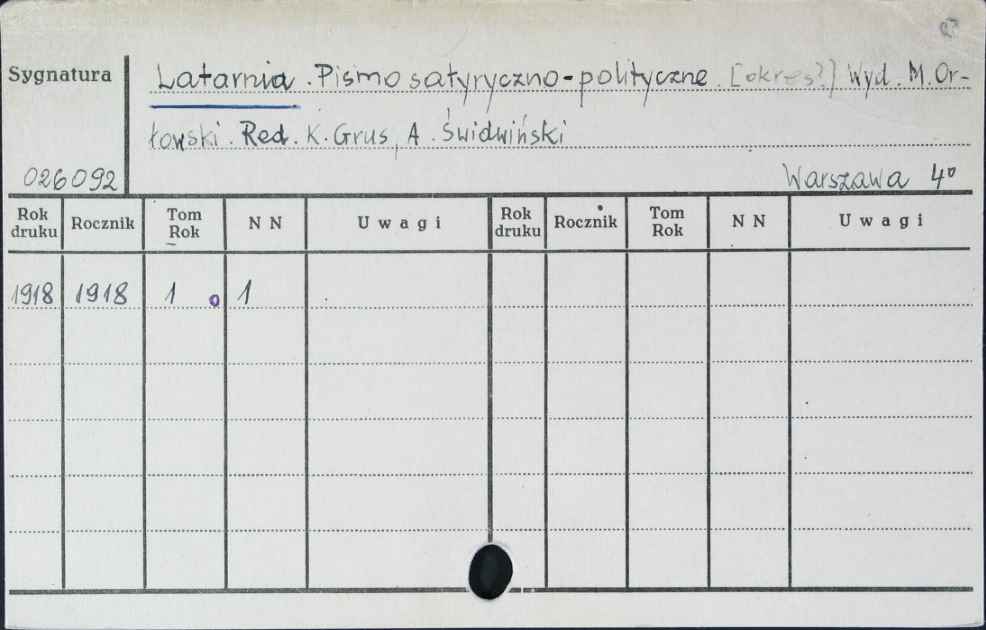 Sygnatura
Latarnia. Pismo satyryczno-polityczne. [okres?] Wyd. M. Or-
łowski. Red. K. Grus, A. Świdwiński
026092
Warszawa 4°
Rok druku Rocznik Tom Rok NN Uwagi Rok druku Rocznik Tom Rok NN Uwagi
1918 1918 1 o 1